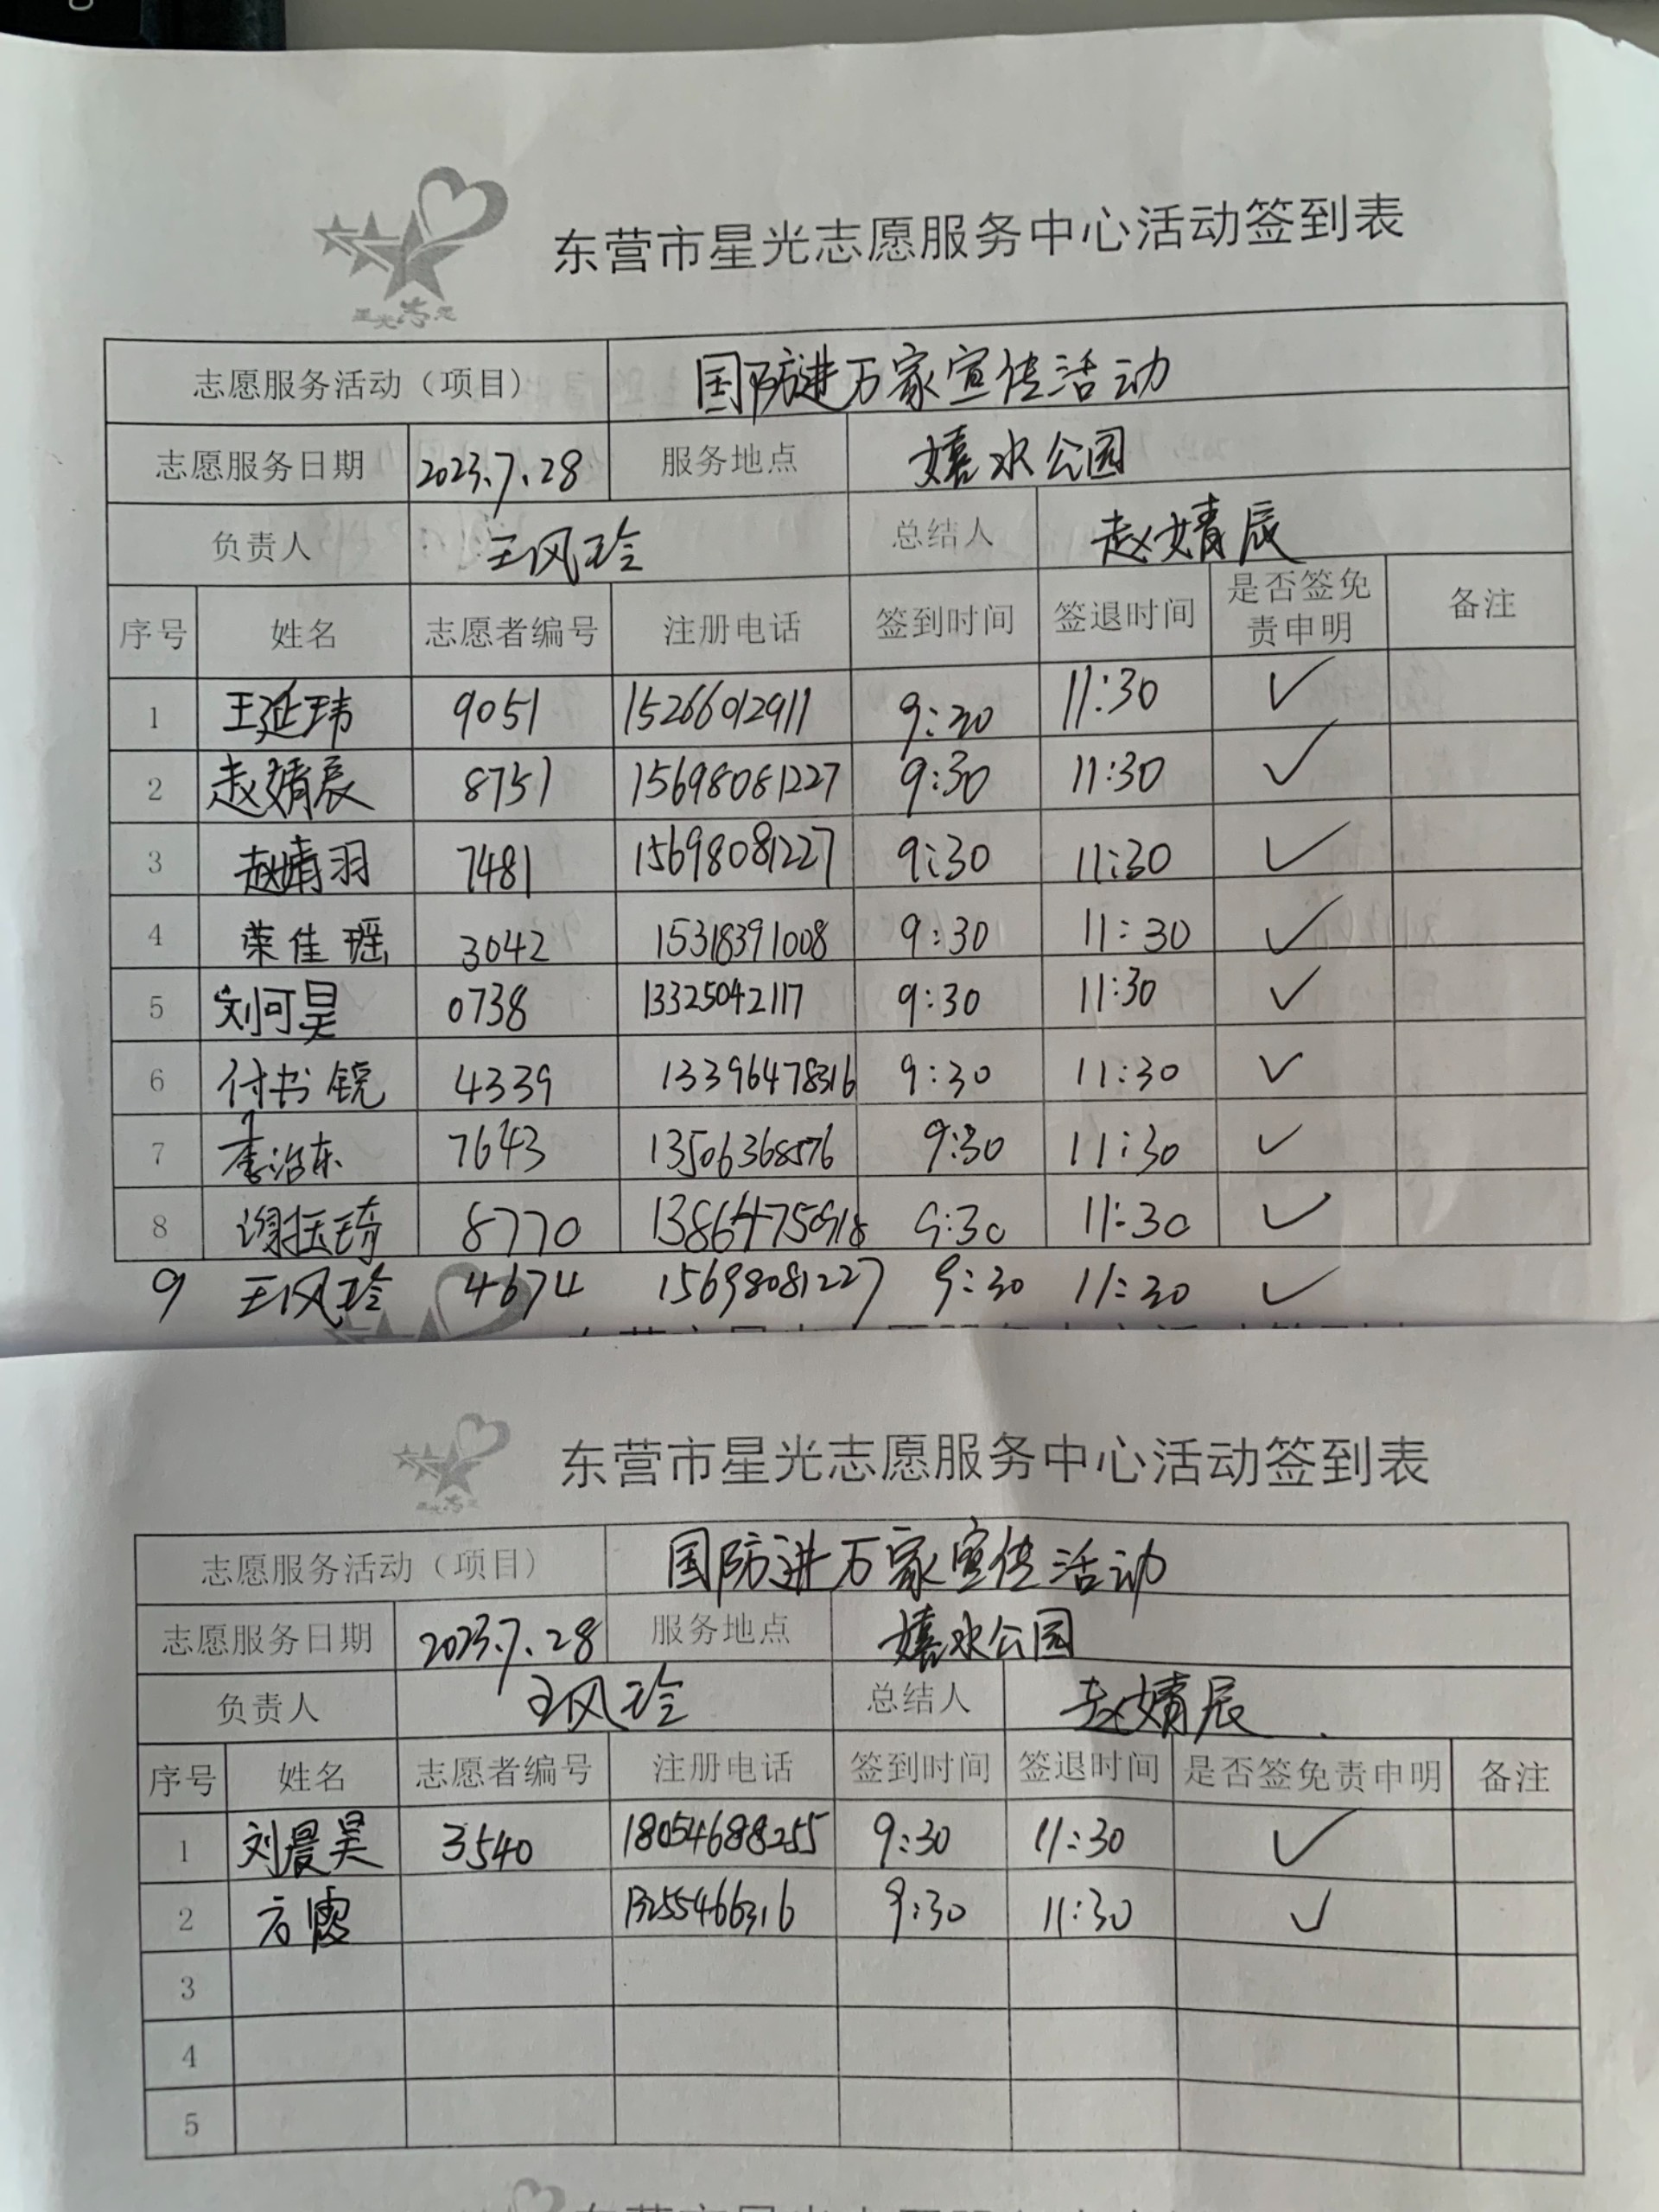 星光志愿
东营市星光志愿服务中心活动签到表
志愿服务活动（项目） 国防进万家宣传活动
志愿服务日期 2023.7.28 服务地点 嬉水公园
负责人 王风玲 总结人 赵婧辰
序号 姓名 志愿者编号 注册电话 签到时间 签退时间 是否签免责申明 备注
1 王延玮 9051 15266012911 9:30 11:30 ✓
2 赵婧辰 8751 15698081227 9:30 11:30 ✓
3 赵婧羽 7481 15698081227 9:30 11:30 ✓
4 荣佳瑶 3042 15318391008 9:30 11:30 ✓
5 刘可昊 0738 13325042117 9:30 11:30 ✓
6 付书锐 4339 13396478316 9:30 11:30 ✓
7 李治东 7643 13506368576 9:30 11:30 ✓
8 8770 13864750918 9:30 11:30 ✓
9 王风玲 4674 15698081227 9:30 11:30 ✓
东营市星光志愿服务中心活动签到表
志愿服务活动（项目） 国防进万家宣传活动
志愿服务日期 2023.7.28 服务地点 嬉水公园
负责人 王风玲 总结人 赵婧辰
序号 姓名 志愿者编号 注册电话 签到时间 签退时间 是否签免责申明 备注
1 刘晨昊 3540 18054688255 9:30 11:30 ✓
2 13255466316 9:30 11:30 ✓
3
4
5